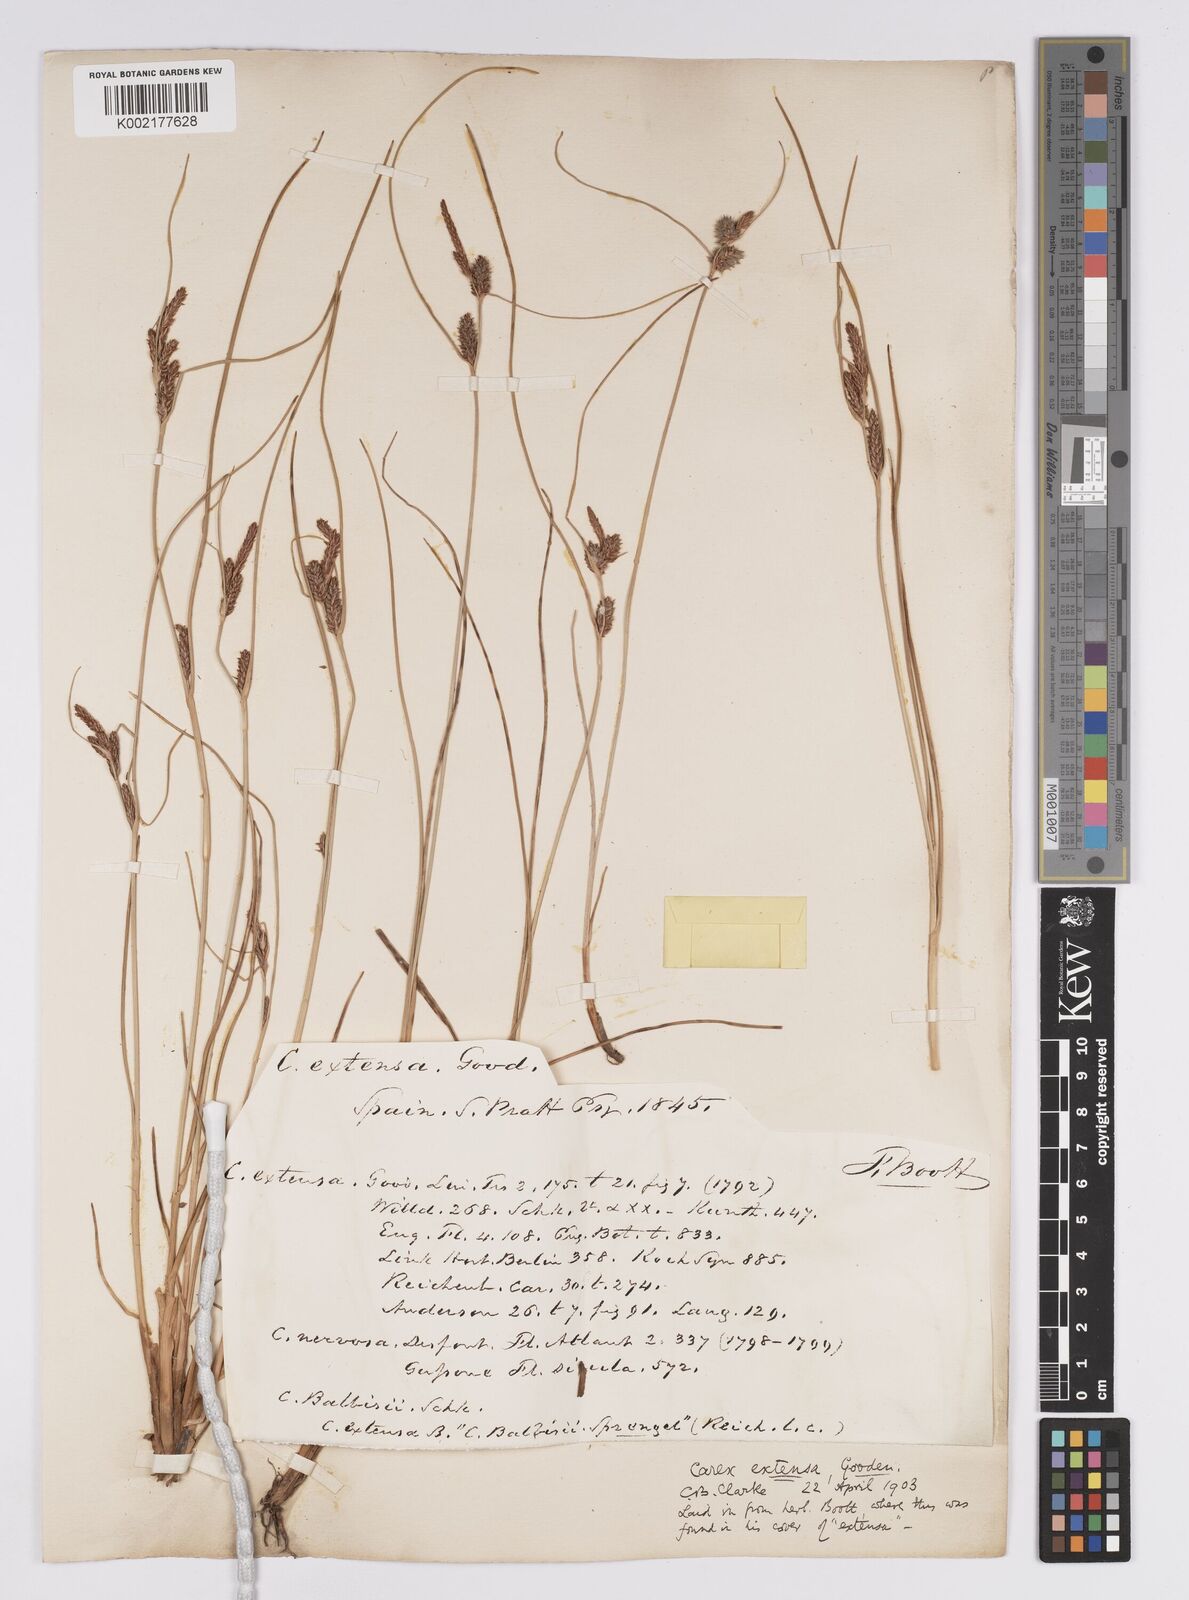 ROYAL BOTANIC GARDENS KEW
K002177628
C. extensa. Good.
Spain. S. Pratt Esq. 1845.
F. Boott
C. extensa. Good. Lin. Trs 2. 175. t 21. fig 7. (1792)
Willd. 268. Schk. XX. - Kunth. 447.
Eng. Fl. 4. 108. Eng. Bot. t. 833.
Link Hort. Berlin 358. Koch Syn 885.
Reichenb. Car. 30. t. 274.
Anderson 26. t 7. fig 91. Lang. 129.
C. nervosa. Desfont. Fl. Atlant 2. 337 (1798-1799)
Gussone Fl. Sicula. 572.
C. Balbisii. Schk.
C. extensa B. "C. Balbisii. Sprengel" (Reich. l. c.)
Carex extensa, Gooden.
C.B. Clarke 22 April 1903
Laid in from herb. Boott, where this was
found in his cover of "extensa" -
inches
centimetres
Density
Don Williams
M001007
Royal Botanic Gardens
Kew
0 1 2 3 4 5 6 7 8 9 10
cm
copyright reserved